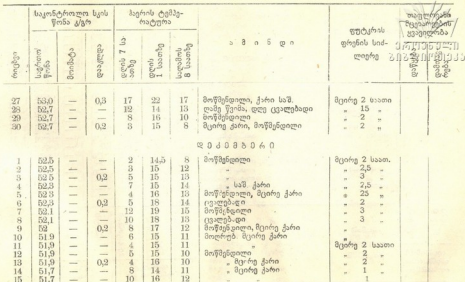 საკონტროლო სკის წონა კ/გრ
ჰაერის ტემპერატურა
ამინდი
ფუტკრის ფრენის სიძლიერე
რიცხვი
საერთო წონა
მოიმატა
დააკლდა
დილის 7 საათზე
დღის 1 საათზე
საღამოს 8 საათზე
27 53,0 — 0,3 17 22 17 მოწმენდილი, ქარი საშ. მცირე 2 საათი
28 52,7 — — 12 14 13 ღამე წვიმა, დღე ცვალებადი „ 15 „
29 52,7 — — 8 16 10 მოწმენდილი „ 2 „
30 52,7 — 0,2 3 15 8 მცირე ქარი, მოწმენდილი „ 2 „
დეკემბერი
1 52,5 — — 2 14,5 8 მოწმენდილი მცირე 2 საათ.
2 52,5 — — 3 15 12 „ „ 2,5 „
3 52,5 — 0,2 5 15 13 „ „ 3 „
4 52,3 — — 7 15 14 „ საშ. ქარი „ 2,5 „
5 52,3 — — 4 16 13 მოწმენდილი, მცირე ქარი „ 25 „
6 52,3 — 0,2 5 18 14 ცვალებადი „ 2 „
7 52,1 — — 12 19 15 მოწმენდილი „ 3 „
8 52,1 — — 10 18 13 ცვალებადი „ 3 „
9 52 — 0,2 8 17 12 მოწმენდილი, მცირე ქარი „
10 51,9 — — 6 15 11 მოღრუბ. მცირე ქარი „
11 51,9 — — 4 15 11 „ მცირე 2 საათი
12 51,9 — — 5 15 10 მოწმენდილი „ 2 „
13 51,9 — 0,2 4 16 10 „ მცირე ქარი „ 2 „
14 51,7 — — 8 14 11 „ მცირე ქარი „ 1 „
15 51,7 — — 10 16 12 „ „ 1 „